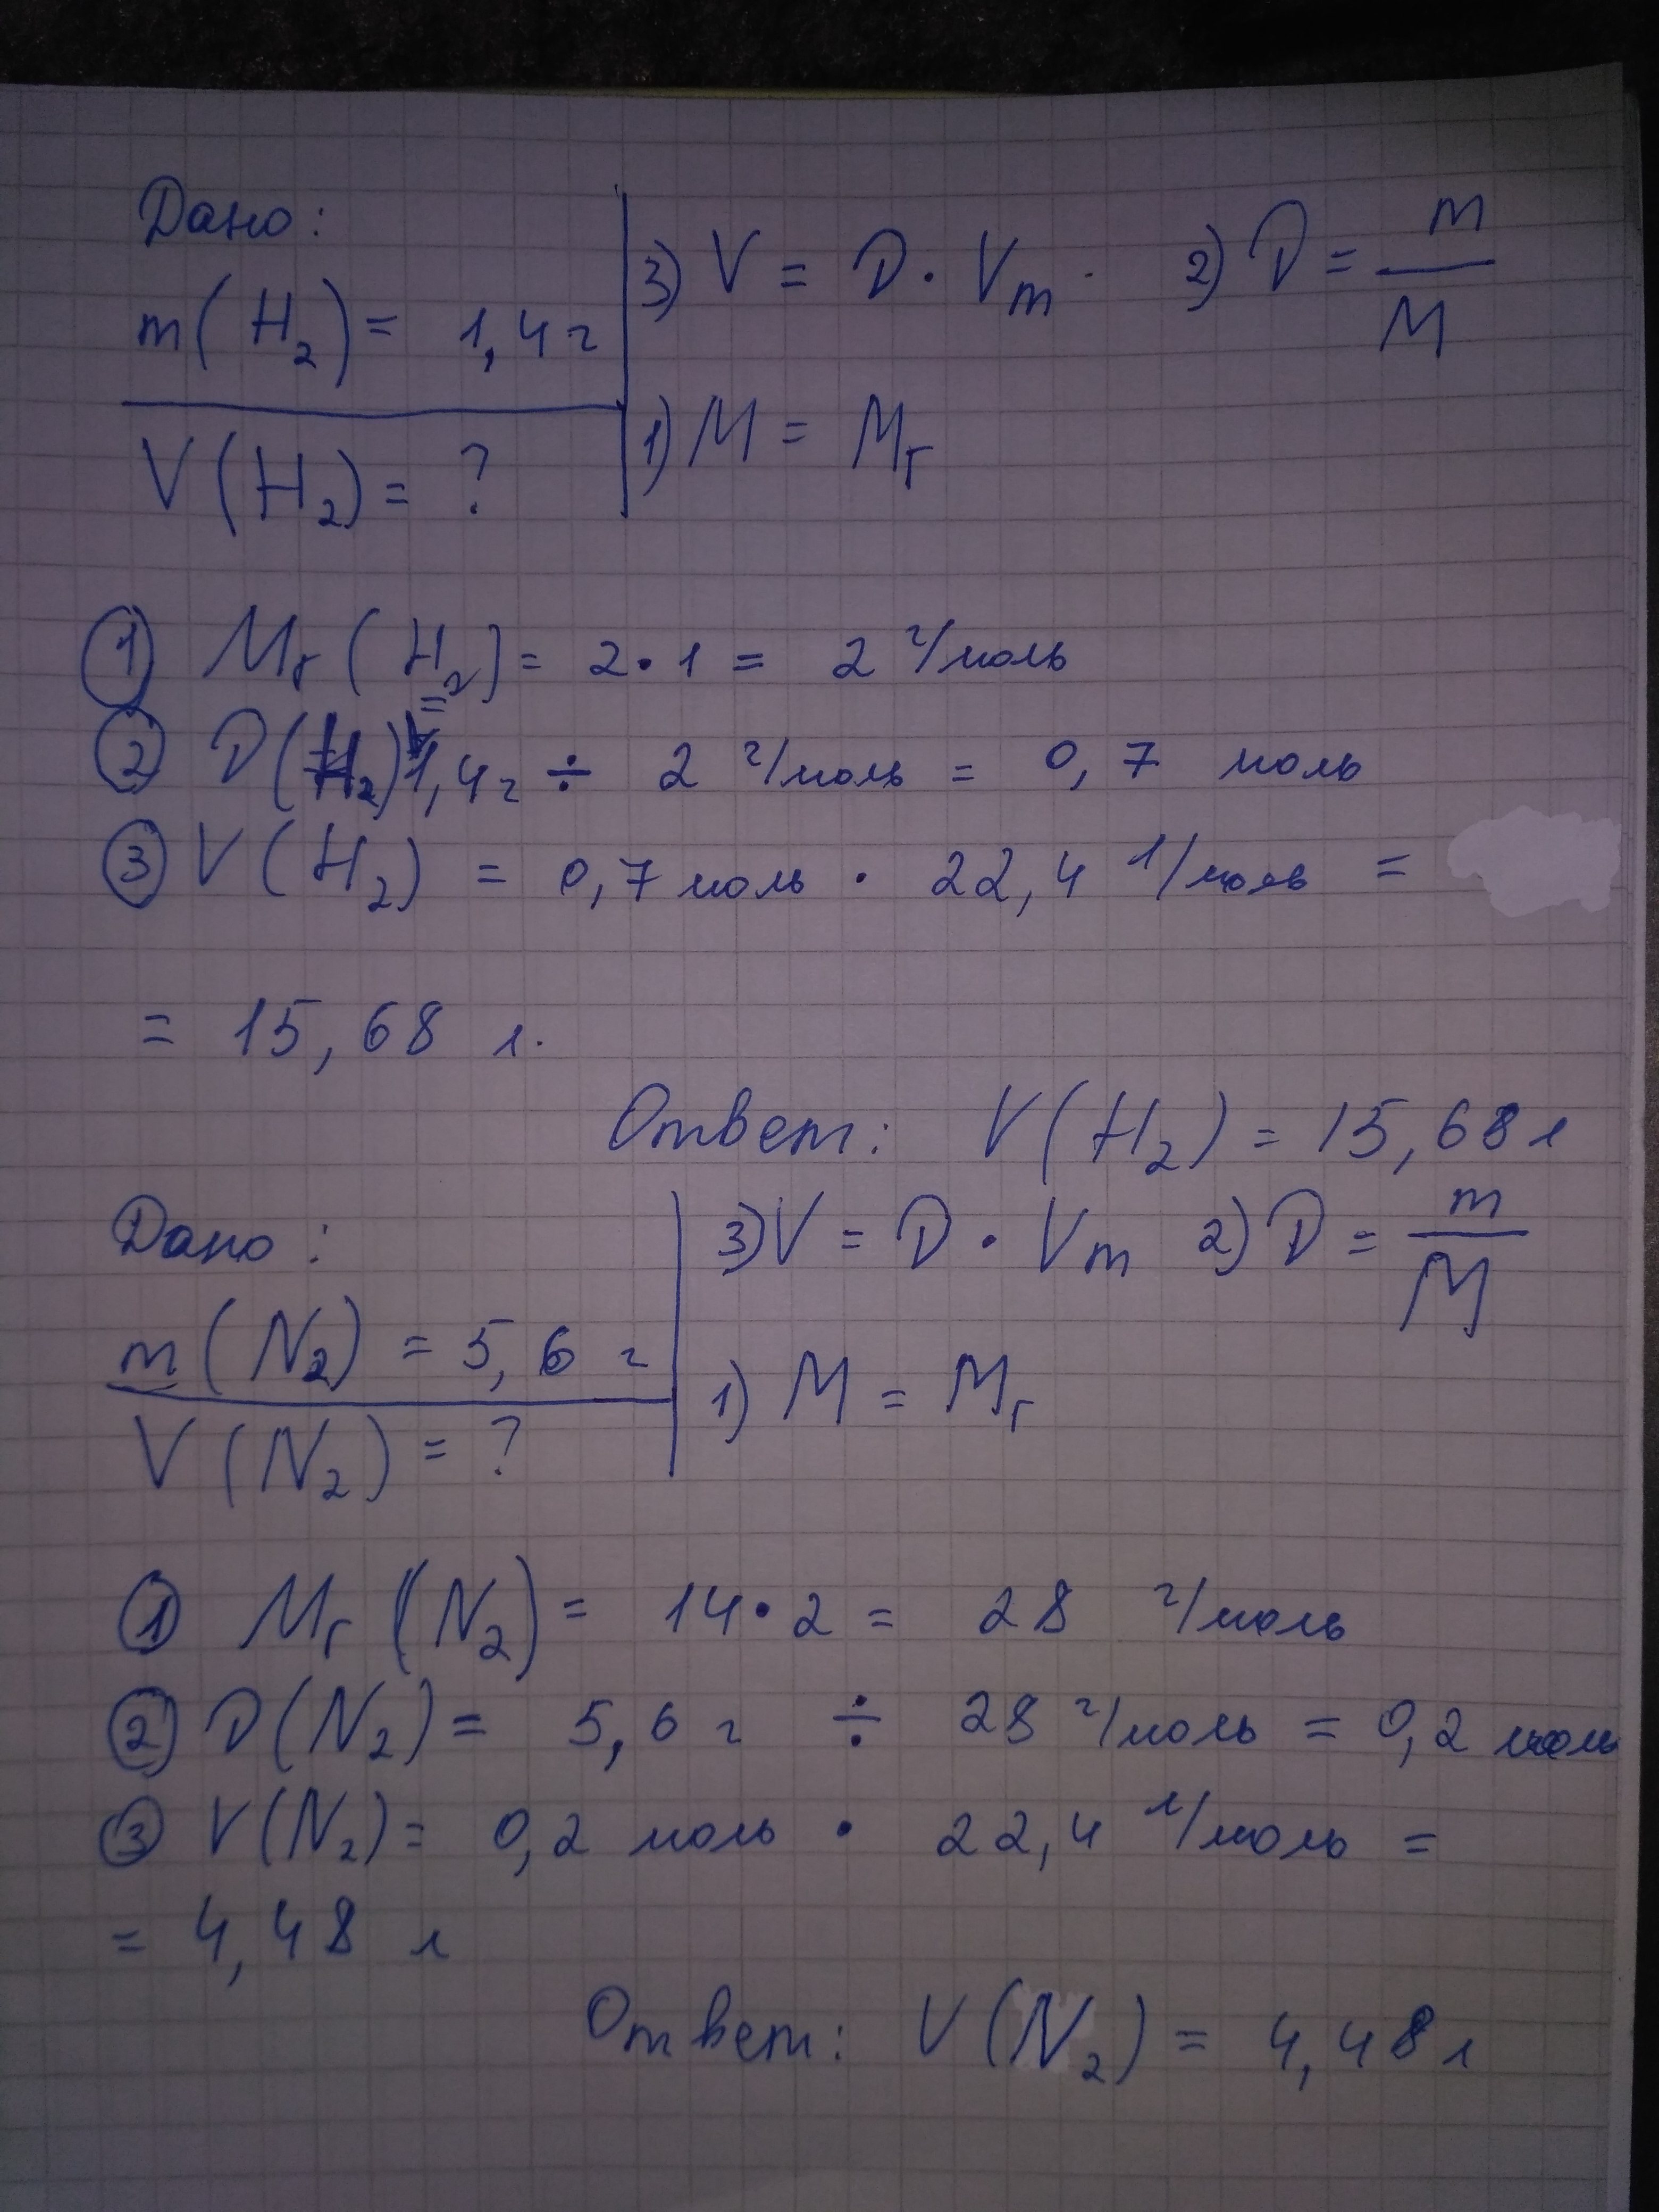 Дано:
m(H₂) = 1,4 г
V(H₂) = ?
3) V = D · Vm · 2) D = m/M
1) M = Mr
① Mr(H₂) = 2·1 = 2 г/моль
② D(H₂) = 1,4 г ÷ 2 г/моль = 0,7 моль
③ V(H₂) = 0,7 моль · 22,4 л/моль =
= 15,68 л.
Ответ: V(H₂) = 15,68 л
Дано:
m(N₂) = 5,6 г
V(N₂) = ?
3) V = D · Vm 2) D = m/M
1) M = Mr
① Mr(N₂) = 14·2 = 28 г/моль
② D(N₂) = 5,6 г ÷ 28 г/моль = 0,2 моль
③ V(N₂) = 0,2 моль · 22,4 л/моль =
= 4,48 л
Ответ: V(N₂) = 4,48 л